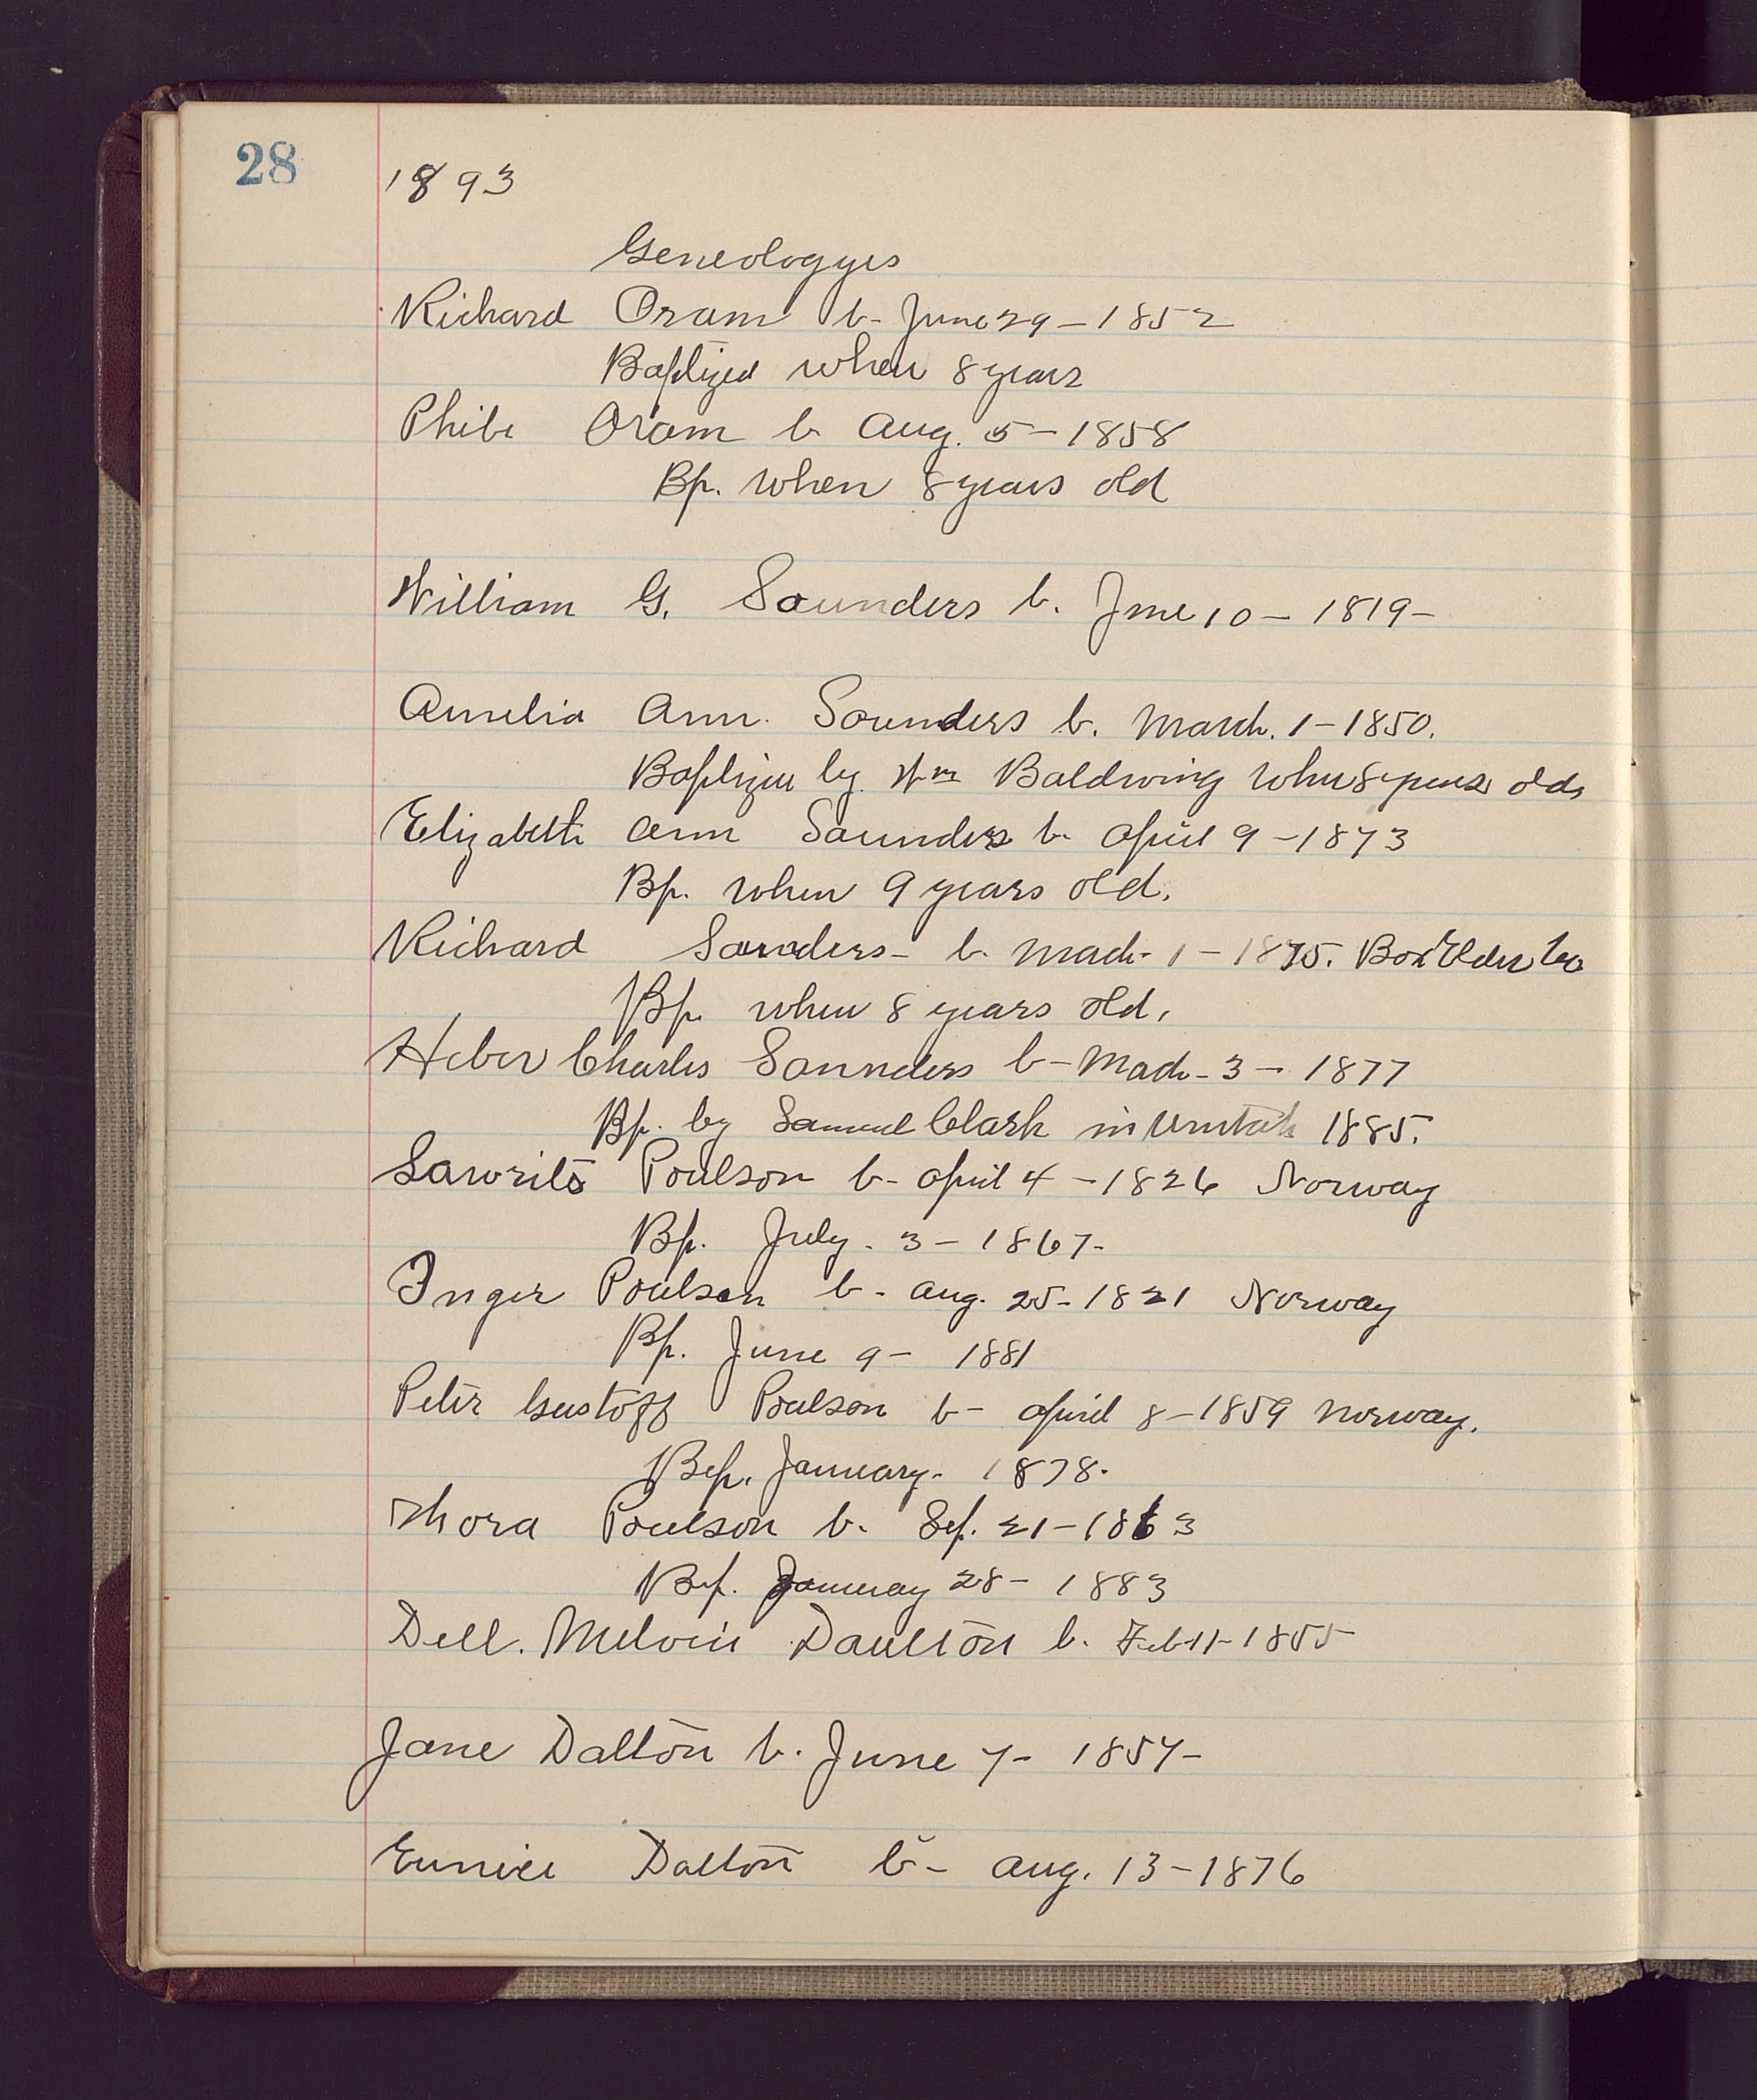 28
1893
Geneologyes
Richard Oram b- June 29 - 1852
Baptized when 8 years
Phibe Oram b Aug. 5 - 1858
Bp. when 8 years old
William G. Saunders b. June 10 - 1819 -
Amelia Ann. Saunders b. March. 1 - 1850.
Baptizeu by Wm Baldwing when 8 years old
Elizabeth Ann Saunders b- April 9 - 1873
Bp. when 9 years old.
Richard Sanders - b. Mach - 1 - 1875. Box Elder Co
Bp. when 8 years old.
Heber Charles Saunders b - Mach - 3 - 1877
Bp. by Samuel Clark in 1885.
Lawrits Poulson b - April 4 - 1826 Norway
Bp. July. 3 - 1867 -
Inger Poulsen b - Aug. 25 - 1821 Norway
Bp. June 9 - 1881
Peter Gustoff Poulson b - April 8 - 1859 Norway.
Bep. January - 1878 -
Thora Poulson b. Sep. 21 - 1863
Bep. January 28 - 1883
Dell. Melvin Daulton b. Feb 11 - 1855
Jane Dalton b. June 7 - 1857 -
Eunice Dalton b - Aug. 13 - 1876